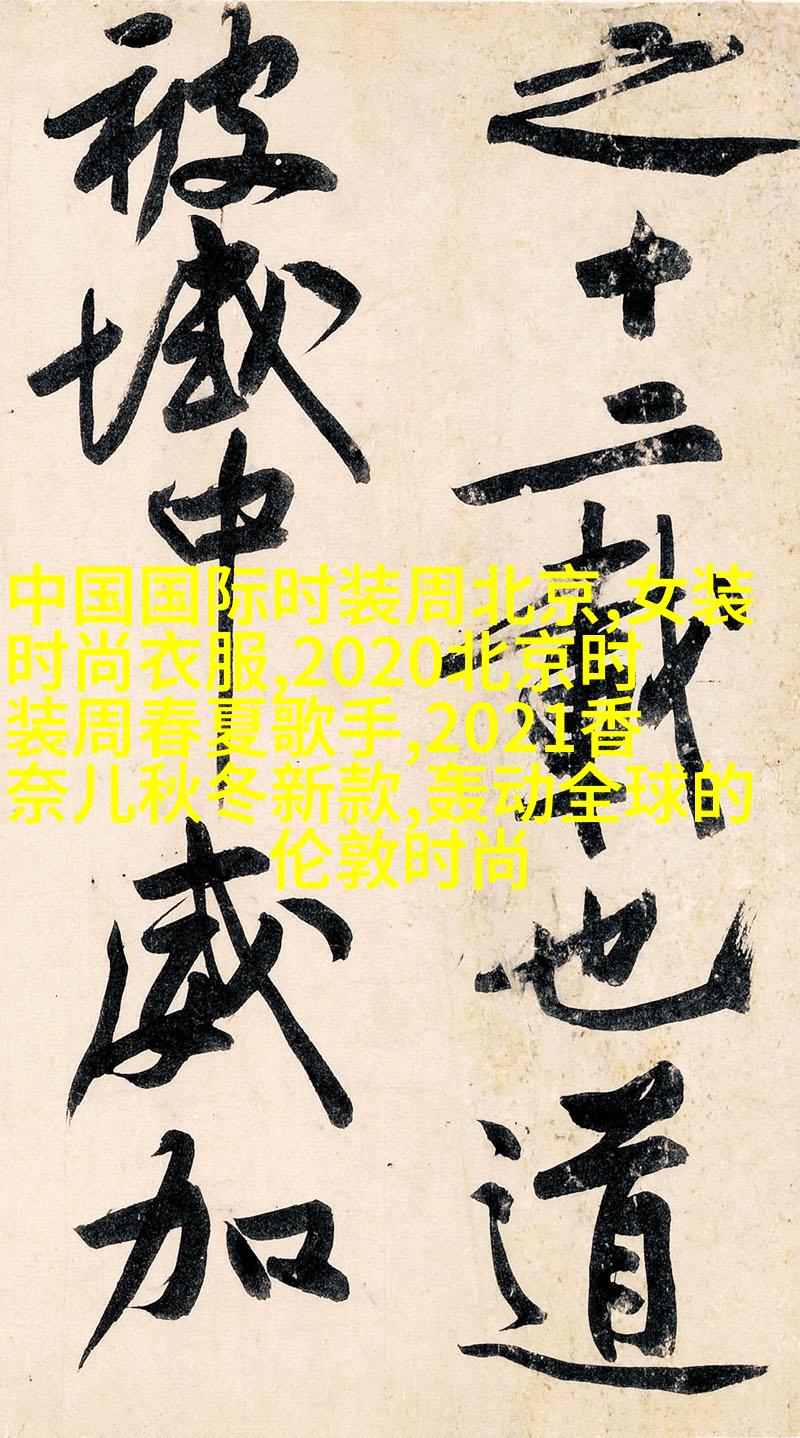 之十二載也道
被域中威加
中国国际时装周北京,女装
时尚衣服,2020北京时
装周春夏歌手,2021香
奈儿秋冬新款,轰动全球的
伦敦时尚